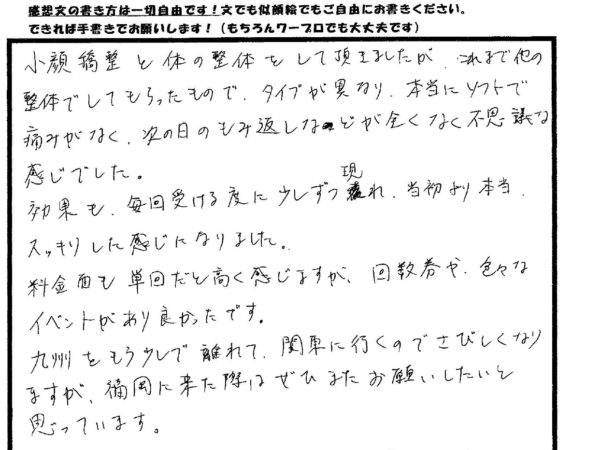 感想文の書き方は一切自由です！文でも似顔絵でもご自由にお書きください。
できれば手書きでお願いします！（もちろんワープロでも大丈夫です）
小顔矯整と体の整体をして頂きましたが、これまで他の
整体でしてもらったもので、タイプが異なり、本当にソフトで
痛みがなく、次の日のもみ返しなどが全くなく不思議な
感じでした。
効果も、毎回受ける度に少しずつ現れ、当初より本当、
スッキリした感じになりました。
料金面も単回だと高く感じますが、回数券や、色々な
イベントがあり良かったです。
九州をもう少しで離れて、関東に行くのでさびしくなり
ますが、福岡に来た際はぜひまたお願いしたいと
思っています。